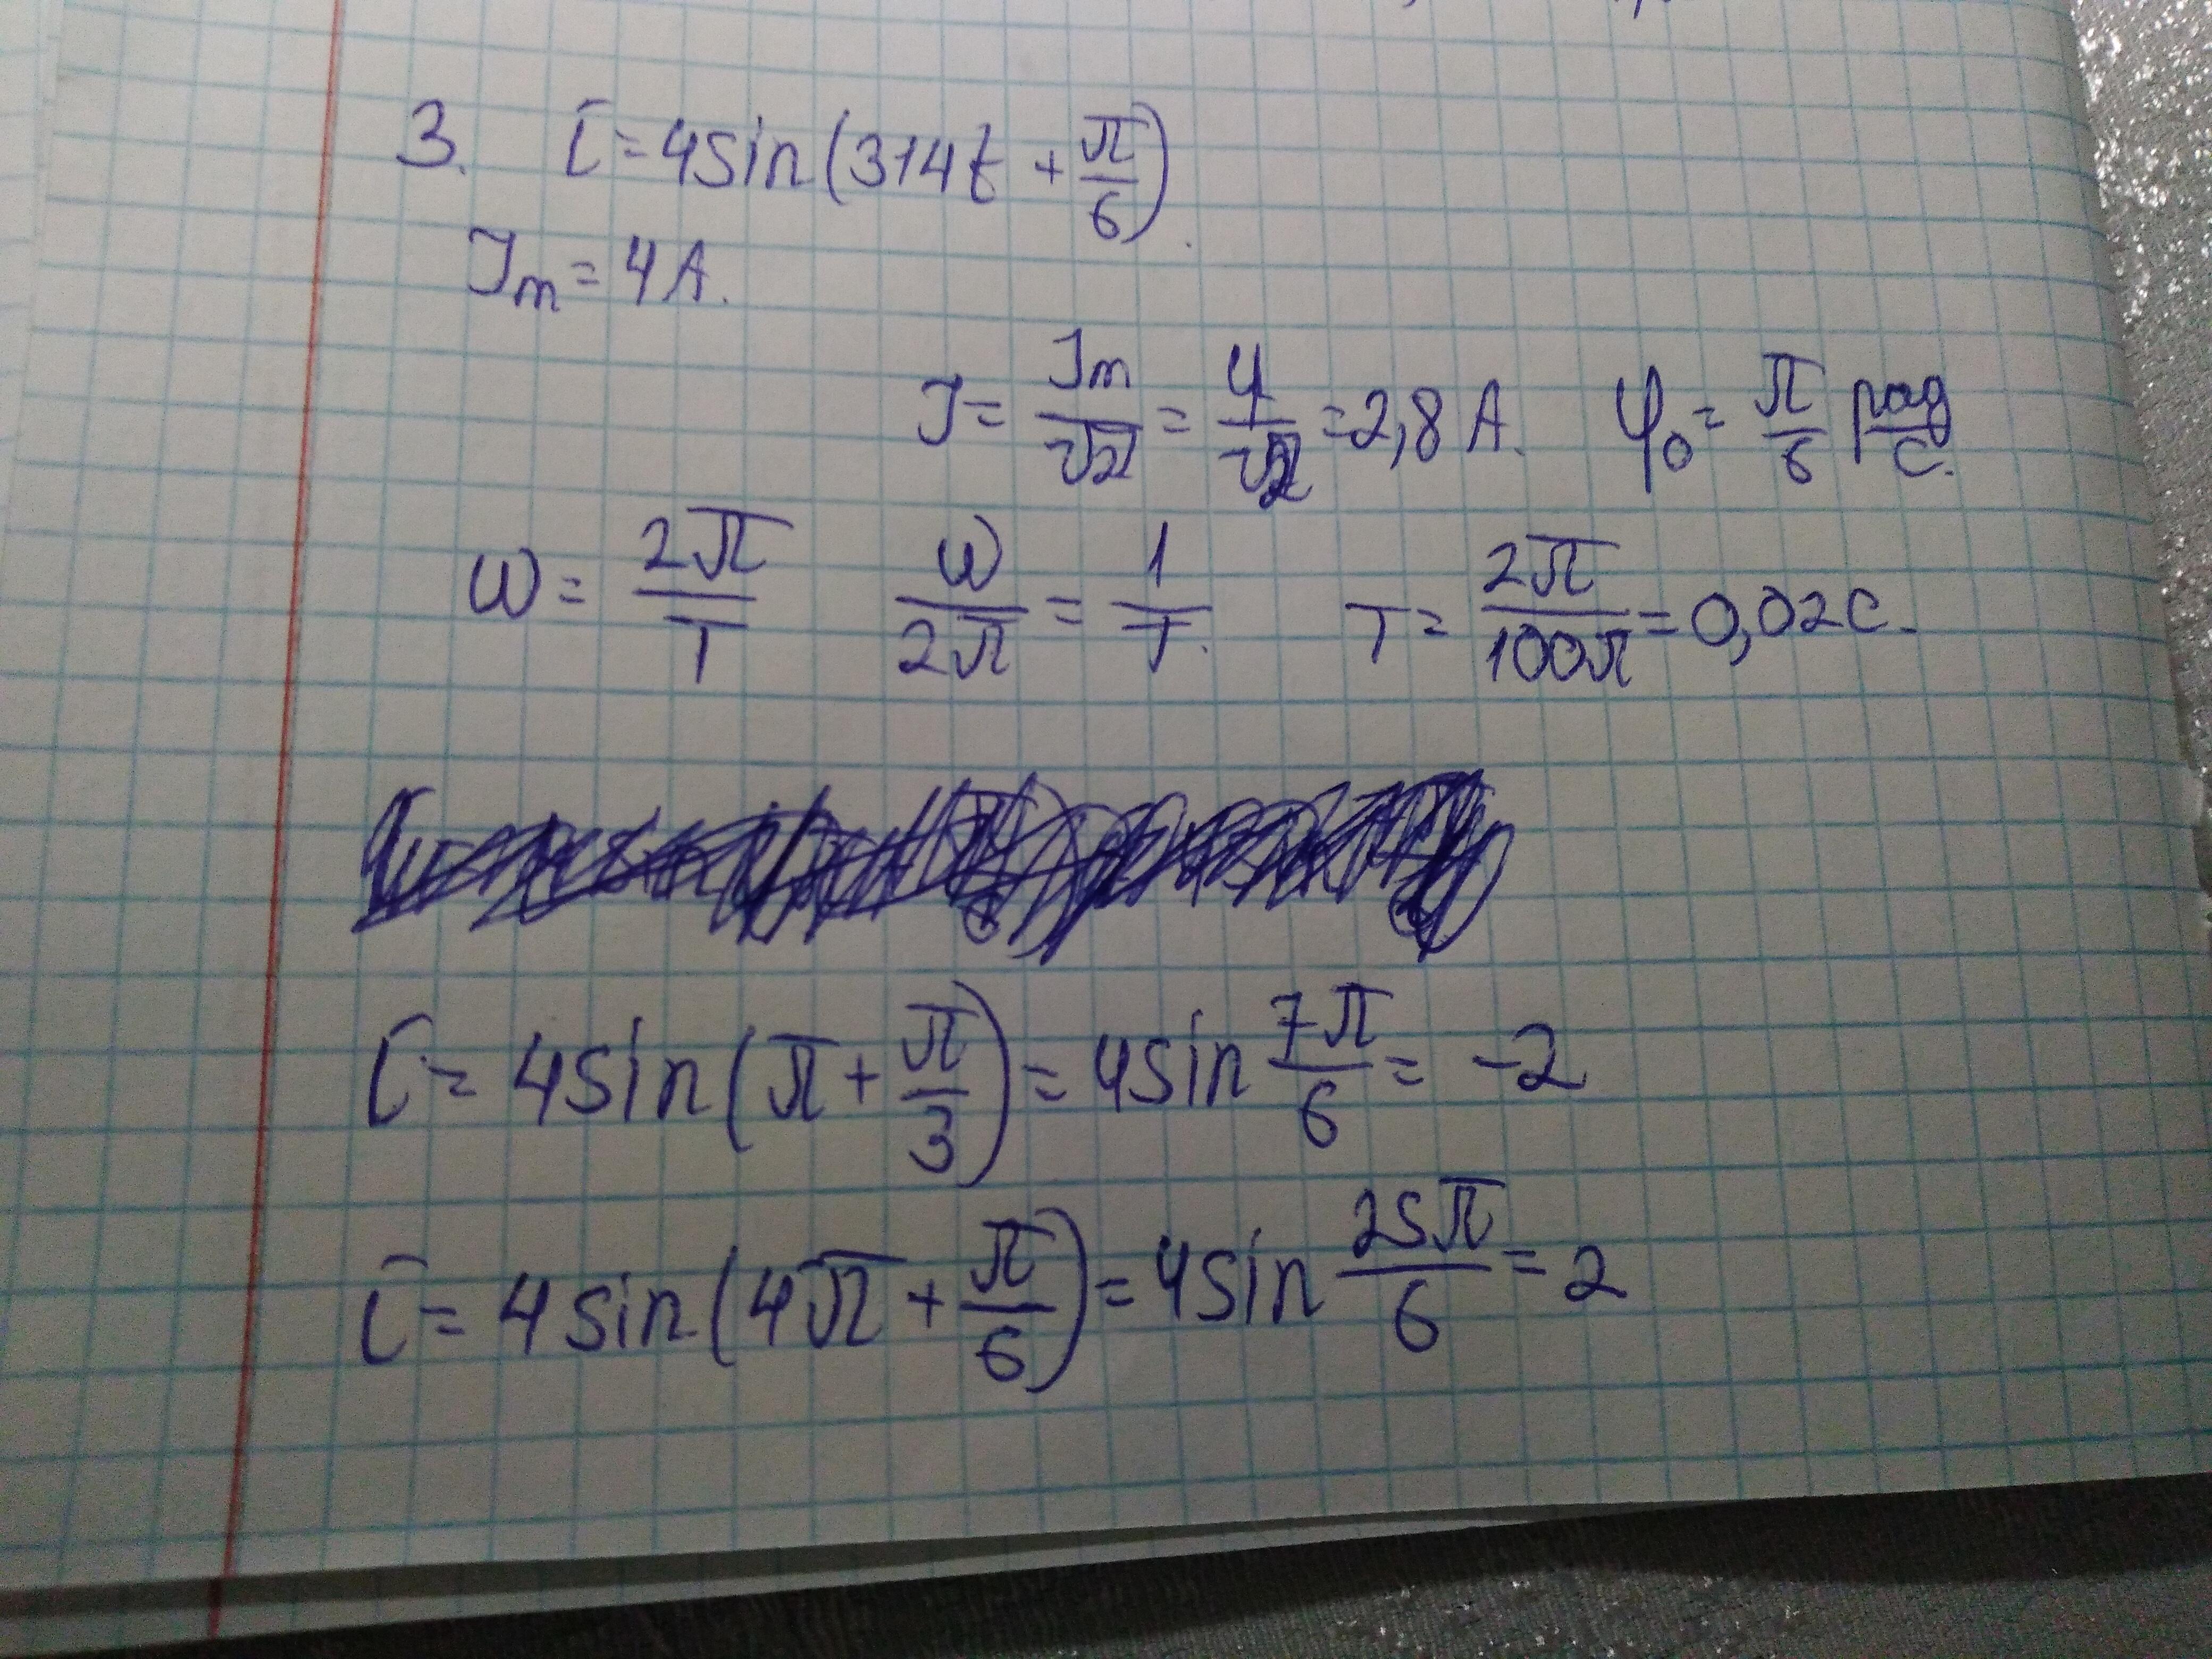 3. i = 4sin(314t + π/6).
Im = 4 A.
I = Im/√2 = 4/√2 = 2,8 A. φ₀ = π/6 рад/с.
ω = 2π/T ω/2π = 1/T. T = 2π/100π = 0,02 с.
i = 4sin(π + π/3) = 4sin 7π/6 = -2
i = 4sin(4π + π/6) = 4sin 25π/6 = 2